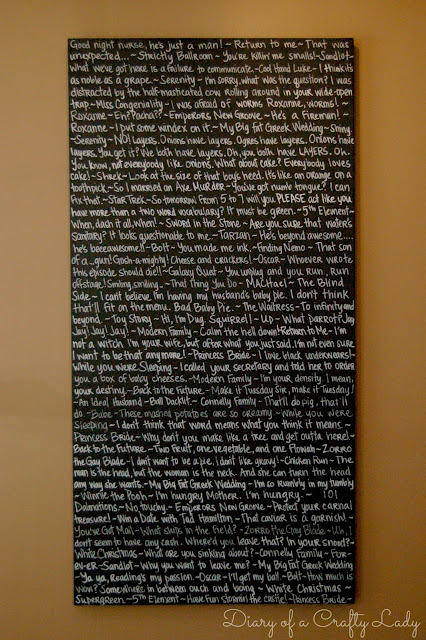 Good night nurse, he's just a man! ~ Return to me ~ That was
unexpected... ~ Strictly Ballroom ~ You're killin' me smalls! ~ Sandlot ~
What we've got here is a failure to communicate. ~ Cool Hand Luke ~ I think it's
as noble as a grape. ~ Serenity ~ I'm sorry, what was the question? I was
distracted by the half-masticated cow rolling around in your wide-open
trap ~ Miss Congeniality ~ I was afraid of worms Roxanne, worms! ~
Roxanne ~ Eh? Pacha?? ~ Emperors New Groove ~ He's a Fireman! ~
Roxanne ~ I put some windex on it. ~ My Big Fat Greek Wedding ~ Shiny.
~ Serenity ~ NO! Layers. Onions have layers. Ogres have layers. Onions have
layers. You get it? We both have layers. Oh, you both have LAYERS. Oh.
You know, not everybody like onions. What about cake? Everybody loves
cake! ~ Shrek ~ Look at the size of that boy's heed. It's like an orange on a
toothpick. ~ So I married an Axe MURDER ~ You've got numb tongue? I can
fix that ~ STAR TREK ~ So tomorrow From 5 to 7 will you PLEASE act like you
have more than a two word vocabulary? It must be green. ~ 5th Element ~
When, dash it all, when! ~ Sword in the Stone ~ Are you sure that water's
sanitary? It looks questionable to me. ~ TARZAN ~ He's beyond awesome...
he's beeeawesome!! ~ Bolt ~ You made me ink. ~ Finding Nemo ~ That son
of a...gun! Gosh-a-mighty! Cheese and crackers! ~ Oscar ~ Whoever wrote
this episode should die!! ~ Galaxy Quest ~ You unplug and you run, run
offstage! Smiling, smiling... ~ That Thing You Do ~ MACHael ~ The Blind
Side ~ I can't believe I'm having my husband's baby pie. I don't think
that'll fit on the menu. Bad Baby Pie. ~ The Waitress ~ To infinity and
beyond. ~ Toy Story ~ Hi, I'm Dug. Squirrel! ~ UP ~ What Darrot? Jay
Jay! Jay! Jay! ~ Modern Family ~ Calm the hell down! Return to Me ~ I'm
not a witch I'm your wife, but after what you just said, I'm not even sure
I want to be that anymore! ~ Princess Bride ~ I love black underwears! ~
While you were Sleeping ~ I called your secretary and told her to order
you a box of baby cheeses. ~ Modern Family ~ I'm your density. I mean,
your destiny. ~ Back to the Future ~ Make it Tuesday Sir, make it Tuesday!
~ An Ideal Husband ~ Ball Dackit. ~ Connelly Family ~ That'll do pig, that'll
do ~ Babe ~ These mashed potatoes are so creamy ~ While you were
Sleeping ~ I don't think that word means what you think it means ~
Princess Bride ~ Why don't you make like a tree and get outta here! ~
Back to the Future ~ Two Fruit, one vegetable, and one Flower. ~ Zorro
the Gay Blade ~ I don't want to be a pie. I don't like gravy! ~ Chicken Run ~ The
man is the head, but the woman is the neck. And she can turn the head
any way she wants. ~ My Big Fat Greek Wedding ~ I'm so rumbly in my tumbly
~ Winnie the Pooh ~ I'm hungry Mother. I'm hungry. ~ 101
Dalmations ~ No touchy ~ Emperors New Groove ~ Protect your carnal
treasure! ~ Win a Date with Tad Hamilton ~ That caviar is a garnish! ~
You've Got Mail ~ What sheep in the Field? ~ Zorro the Gay Blade ~ Uh, I
don't seem to have any cash. Where'd you leave that? In your snood? ~
White Christmas ~ What are you sinking about? ~ Connelly Family ~ For-
ev-er ~ Sandlot ~ Why you want to leave me? ~ My Big Fat Greek Wedding
~ Ya ya, Reading's my passion. ~ Oscar ~ I'll get my ball. ~ Bolt ~ How much is
wow? Somewhere in between ouch and boing ~ White Christmas ~
Supergreen ~ 5th Element ~ Have fun stormin' the castle! ~ Princess Bride ~
Diary of a Crafty Lady